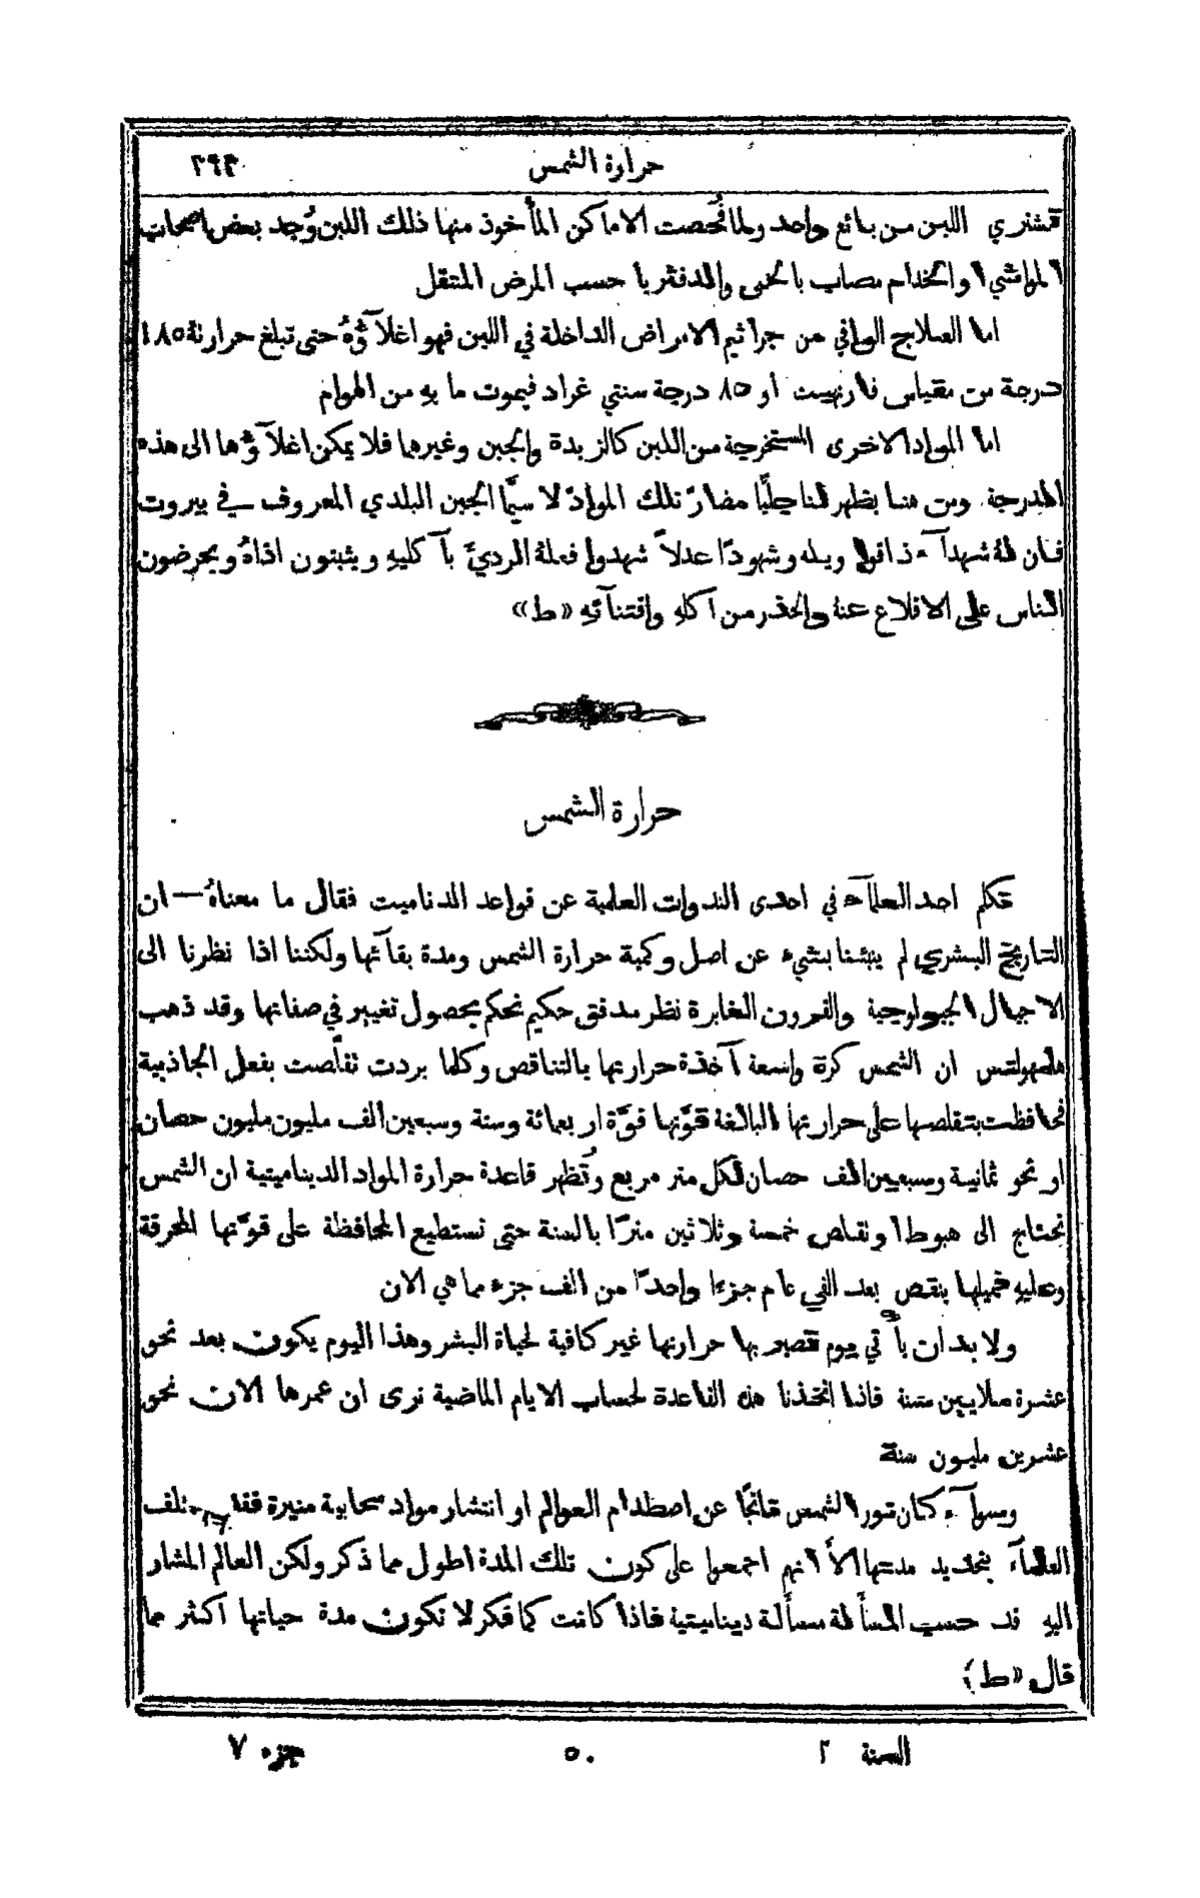 حرارة الشمس ٣٩٣
تشتري اللبن من بائع واحد ولما فُحصت الاماكن المأخوذ منها ذلك اللبن وُجد بعض اصحاب
المواشي او الخدام مصاب بالحمى والدفثريا حسب المرض المنتقل
اما العلاج الوافي من جراثيم الامراض الداخلة في اللبن فهو اغلآؤهُ حتى تبلغ حرارتهُ ١٨٥
درجة من مقياس فارنهيت او ٨٥ درجة سنتي غراد فيموت ما بهِ من الهوام
اما المواد الاخرى المستخرجة من اللبن كالزبدة والجبن وغيرها فلا يمكن اغلآؤها الى هذه
الدرجة ومن هنا يظهر لنا جليًّا مضارّ تلك الموادّ لا سيَّما الجبن البلدي المعروف في بيروت
فان لهُ شهدآء ذاقوا ويله وشهودًا عدلاً شهدوا فعلهُ الرديّ بآكليهِ ويثبتون اذاهُ ويحرضون
الناس على الاقلاع عنهُ والحذر من اكلهِ واقتنآئهِ «ط»
حرارة الشمس
تكلم احد العلمآء في احدى الندوات العلمية عن قواعد الدناميت فقال ما معناهُ — ان
التاريخ البشري لم ينبئنا بشيء عن اصل وكمية حرارة الشمس ومدة بقآئها ولكننا اذا نظرنا الى
الاجيال الجيولوجية والقرون الغابرة نظر مدقق حكيم نحكم بحصول تغيير في صفاتها وقد ذهب
هلمهولتس ان الشمس كرة واسعة آخذة حرارتها بالتناقص وكلما بردت تقلَّصت بفعل الجاذبية
فحافظت بتقلصها على حرارتها البالغة قوَّتها قوَّة اربعمائة وستة وسبعين الف مليون مليون حصان
او نحو ثمانية وسبعين الف حصان لكل متر مربع وتُظهر قاعدة حرارة المواد الديناميتية ان الشمس
تحتاج الى هبوط او تقلص خمسة وثلاثين مترًا بالسنة حتى تستطيع المحافظة على قوَّتها المحرقة
وعليهِ فميلها ينقص بعد الفي عام جزءًا واحدًا من الف جزء مما هي الان
ولا بد ان يأتي يوم تصير بها حرارتها غير كافية لحياة البشر وهذا اليوم يكون بعد نحو
عشرة ملايين سنة فاذا اتخذنا هذه القاعدة لحساب الايام الماضية نرى ان عمرها الان نحو
عشرين مليون سنة
وسوآء كان نور الشمس ناتجًا عن اصطدام العوالم او انتشار مواد سحابية منيرة فقد اختلف
العلمآء بتحديد مدتها الاَّ انهم اجمعوا على كون تلك المدة اطول مما ذكر ولكن العالم المشار
اليهِ قد حسب المسألة مسألة ديناميتية فاذا كانت كما ذكر لا تكون مدة حياتها اكثر مما
قال «ط»
السنة ٢ ٥٠ جزء ٧